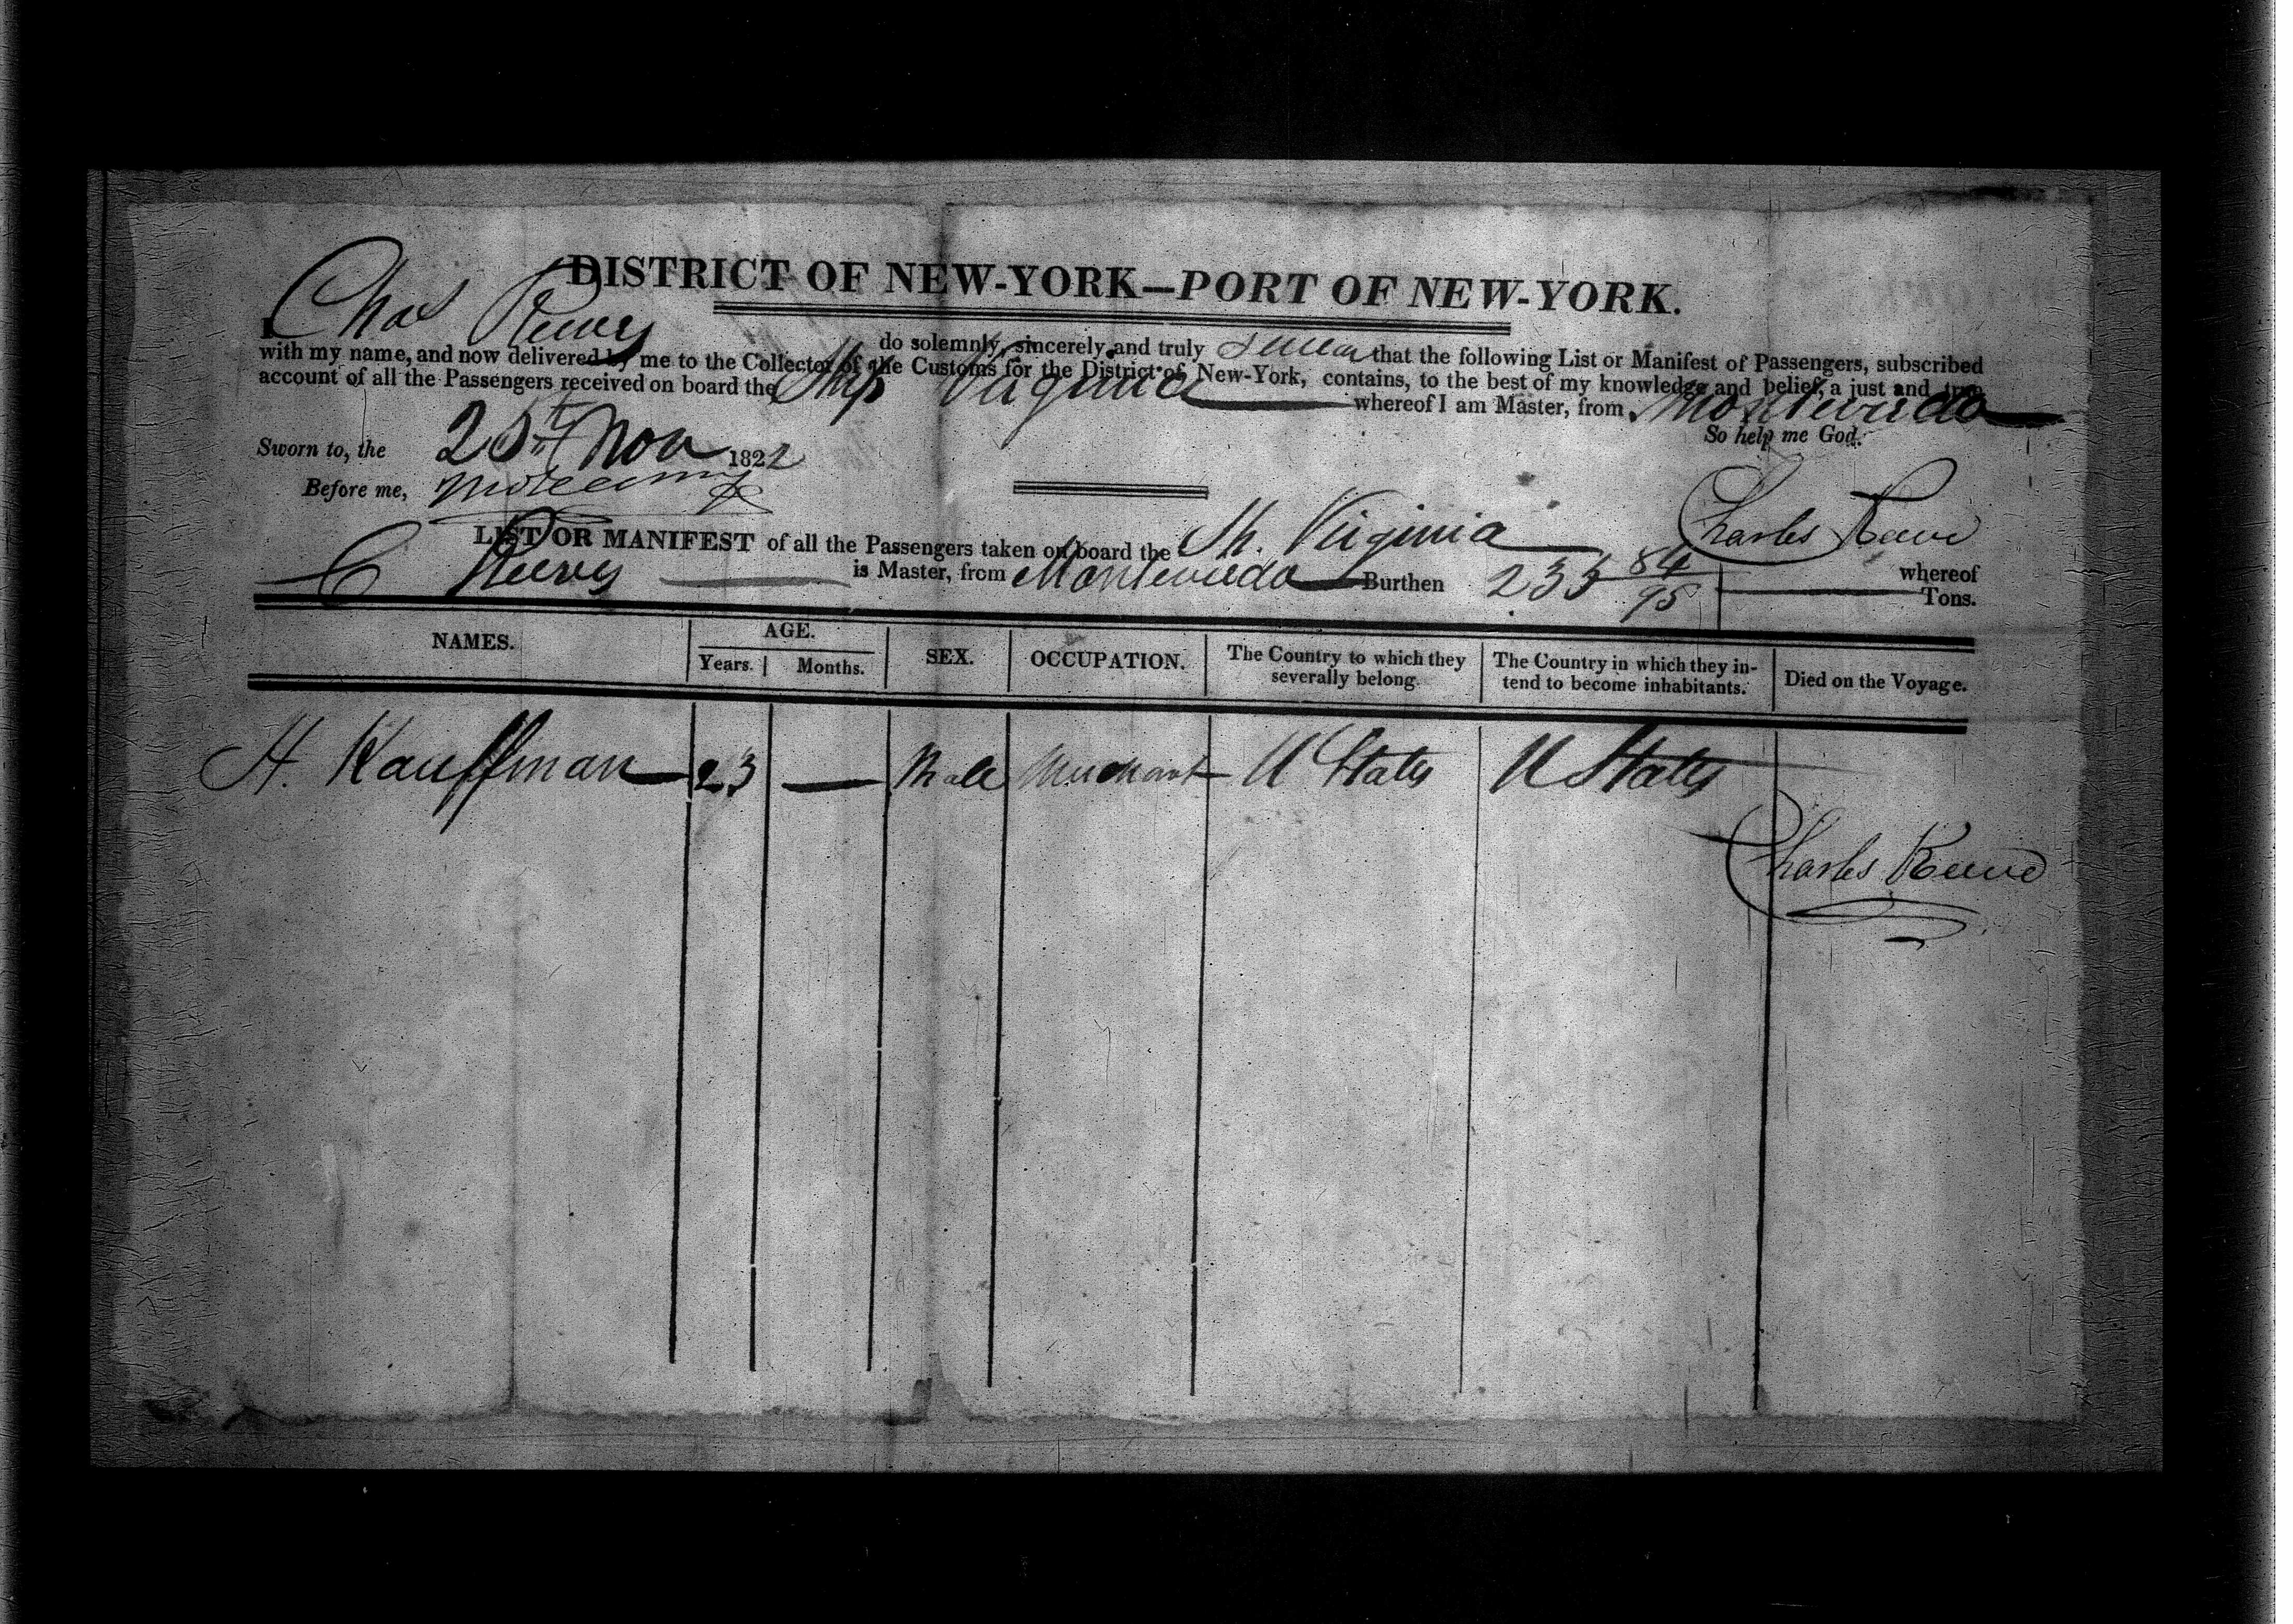 DISTRICT OF NEW-YORK—PORT OF NEW-YORK.
I Chas Reeves do solemnly, sincerely and truly swear that the following List or Manifest of Passengers, subscribed
with my name, and now delivered by me to the Collector of the Customs for the District of New-York, contains, to the best of my knowledge and belief, a just and true
account of all the Passengers received on board the Ship Virginia whereof I am Master, from Montevideo
So help me God.
Sworn to, the 25th Nov 1822
Before me,
Charles Reeve
LIST OR MANIFEST of all the Passengers taken on board the Sh. Virginia whereof
C Reeves is Master, from Montevideo Burthen 235 84/95 Tons.
NAMES. AGE. SEX. OCCUPATION. The Country to which they severally belong. The Country in which they intend to become inhabitants. Died on the Voyage.
Years. Months.
H. Kauffman 23 — Male Merchant U States U States
Charles Reeve